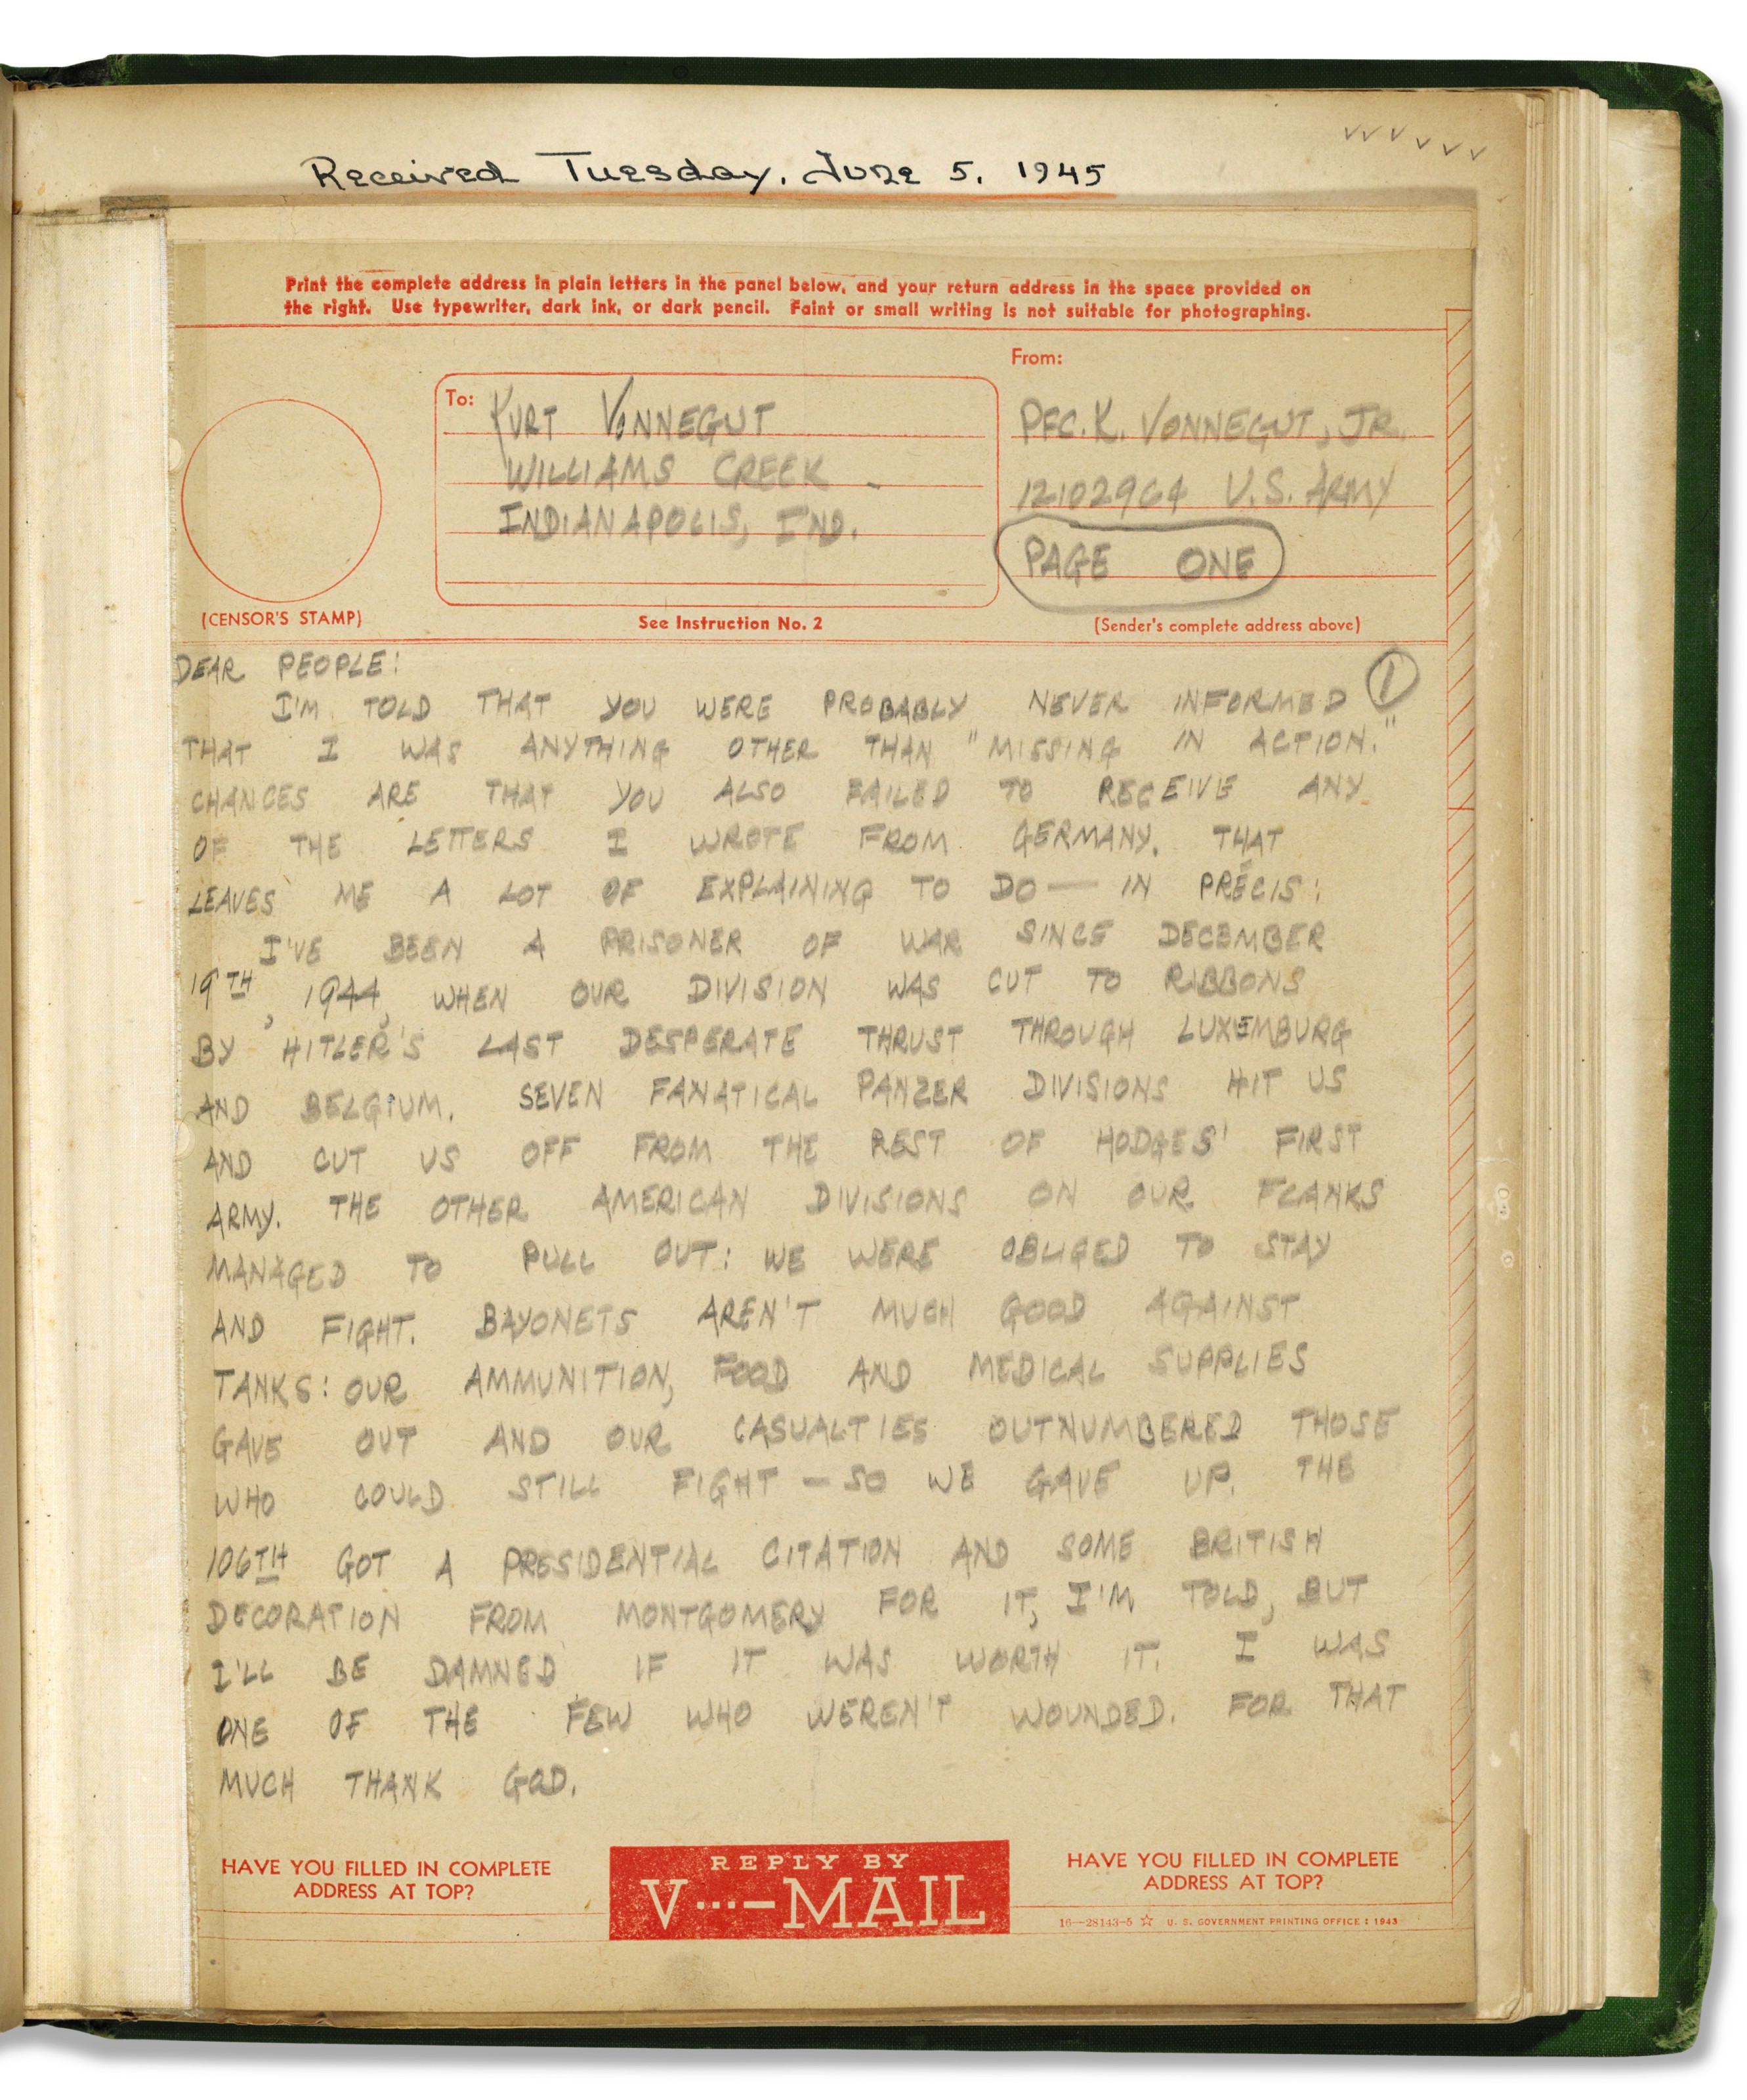 Received Tuesday, June 5, 1945
Print the complete address in plain letters in the panel below, and your return address in the space provided on
the right. Use typewriter, dark ink, or dark pencil. Faint or small writing is not suitable for photographing.
(CENSOR'S STAMP)
To:
KURT VONNEGUT
WILLIAMS CREEK
INDIANAPOLIS, IND.
See Instruction No. 2
From:
PFC. K. VONNEGUT, JR.
12102964 U.S. ARMY
PAGE ONE
(Sender's complete address above)
1
DEAR PEOPLE:
I'M TOLD THAT YOU WERE PROBABLY NEVER INFORMED
THAT I WAS ANYTHING OTHER THAN "MISSING IN ACTION."
CHANCES ARE THAT YOU ALSO FAILED TO RECEIVE ANY
OF THE LETTERS I WROTE FROM GERMANY. THAT
LEAVES ME A LOT OF EXPLAINING TO DO — IN PRÉCIS:
I'VE BEEN A PRISONER OF WAR SINCE DECEMBER
19TH, 1944, WHEN OUR DIVISION WAS CUT TO RIBBONS
BY HITLER'S LAST DESPERATE THRUST THROUGH LUXEMBURG
AND BELGIUM. SEVEN FANATICAL PANZER DIVISIONS HIT US
AND CUT US OFF FROM THE REST OF HODGES' FIRST
ARMY. THE OTHER AMERICAN DIVISIONS ON OUR FLANKS
MANAGED TO PULL OUT: WE WERE OBLIGED TO STAY
AND FIGHT. BAYONETS AREN'T MUCH GOOD AGAINST
TANKS: OUR AMMUNITION, FOOD AND MEDICAL SUPPLIES
GAVE OUT AND OUR CASUALTIES OUTNUMBERED THOSE
WHO COULD STILL FIGHT — SO WE GAVE UP. THE
106TH GOT A PRESIDENTIAL CITATION AND SOME BRITISH
DECORATION FROM MONTGOMERY FOR IT, I'M TOLD, BUT
I'LL BE DAMNED IF IT WAS WORTH IT. I WAS
ONE OF THE FEW WHO WEREN'T WOUNDED. FOR THAT
MUCH THANK GOD.
HAVE YOU FILLED IN COMPLETE
ADDRESS AT TOP?
REPLY BY
V···—MAIL
HAVE YOU FILLED IN COMPLETE
ADDRESS AT TOP?
16—28143-5 ☆ U. S. GOVERNMENT PRINTING OFFICE : 1943